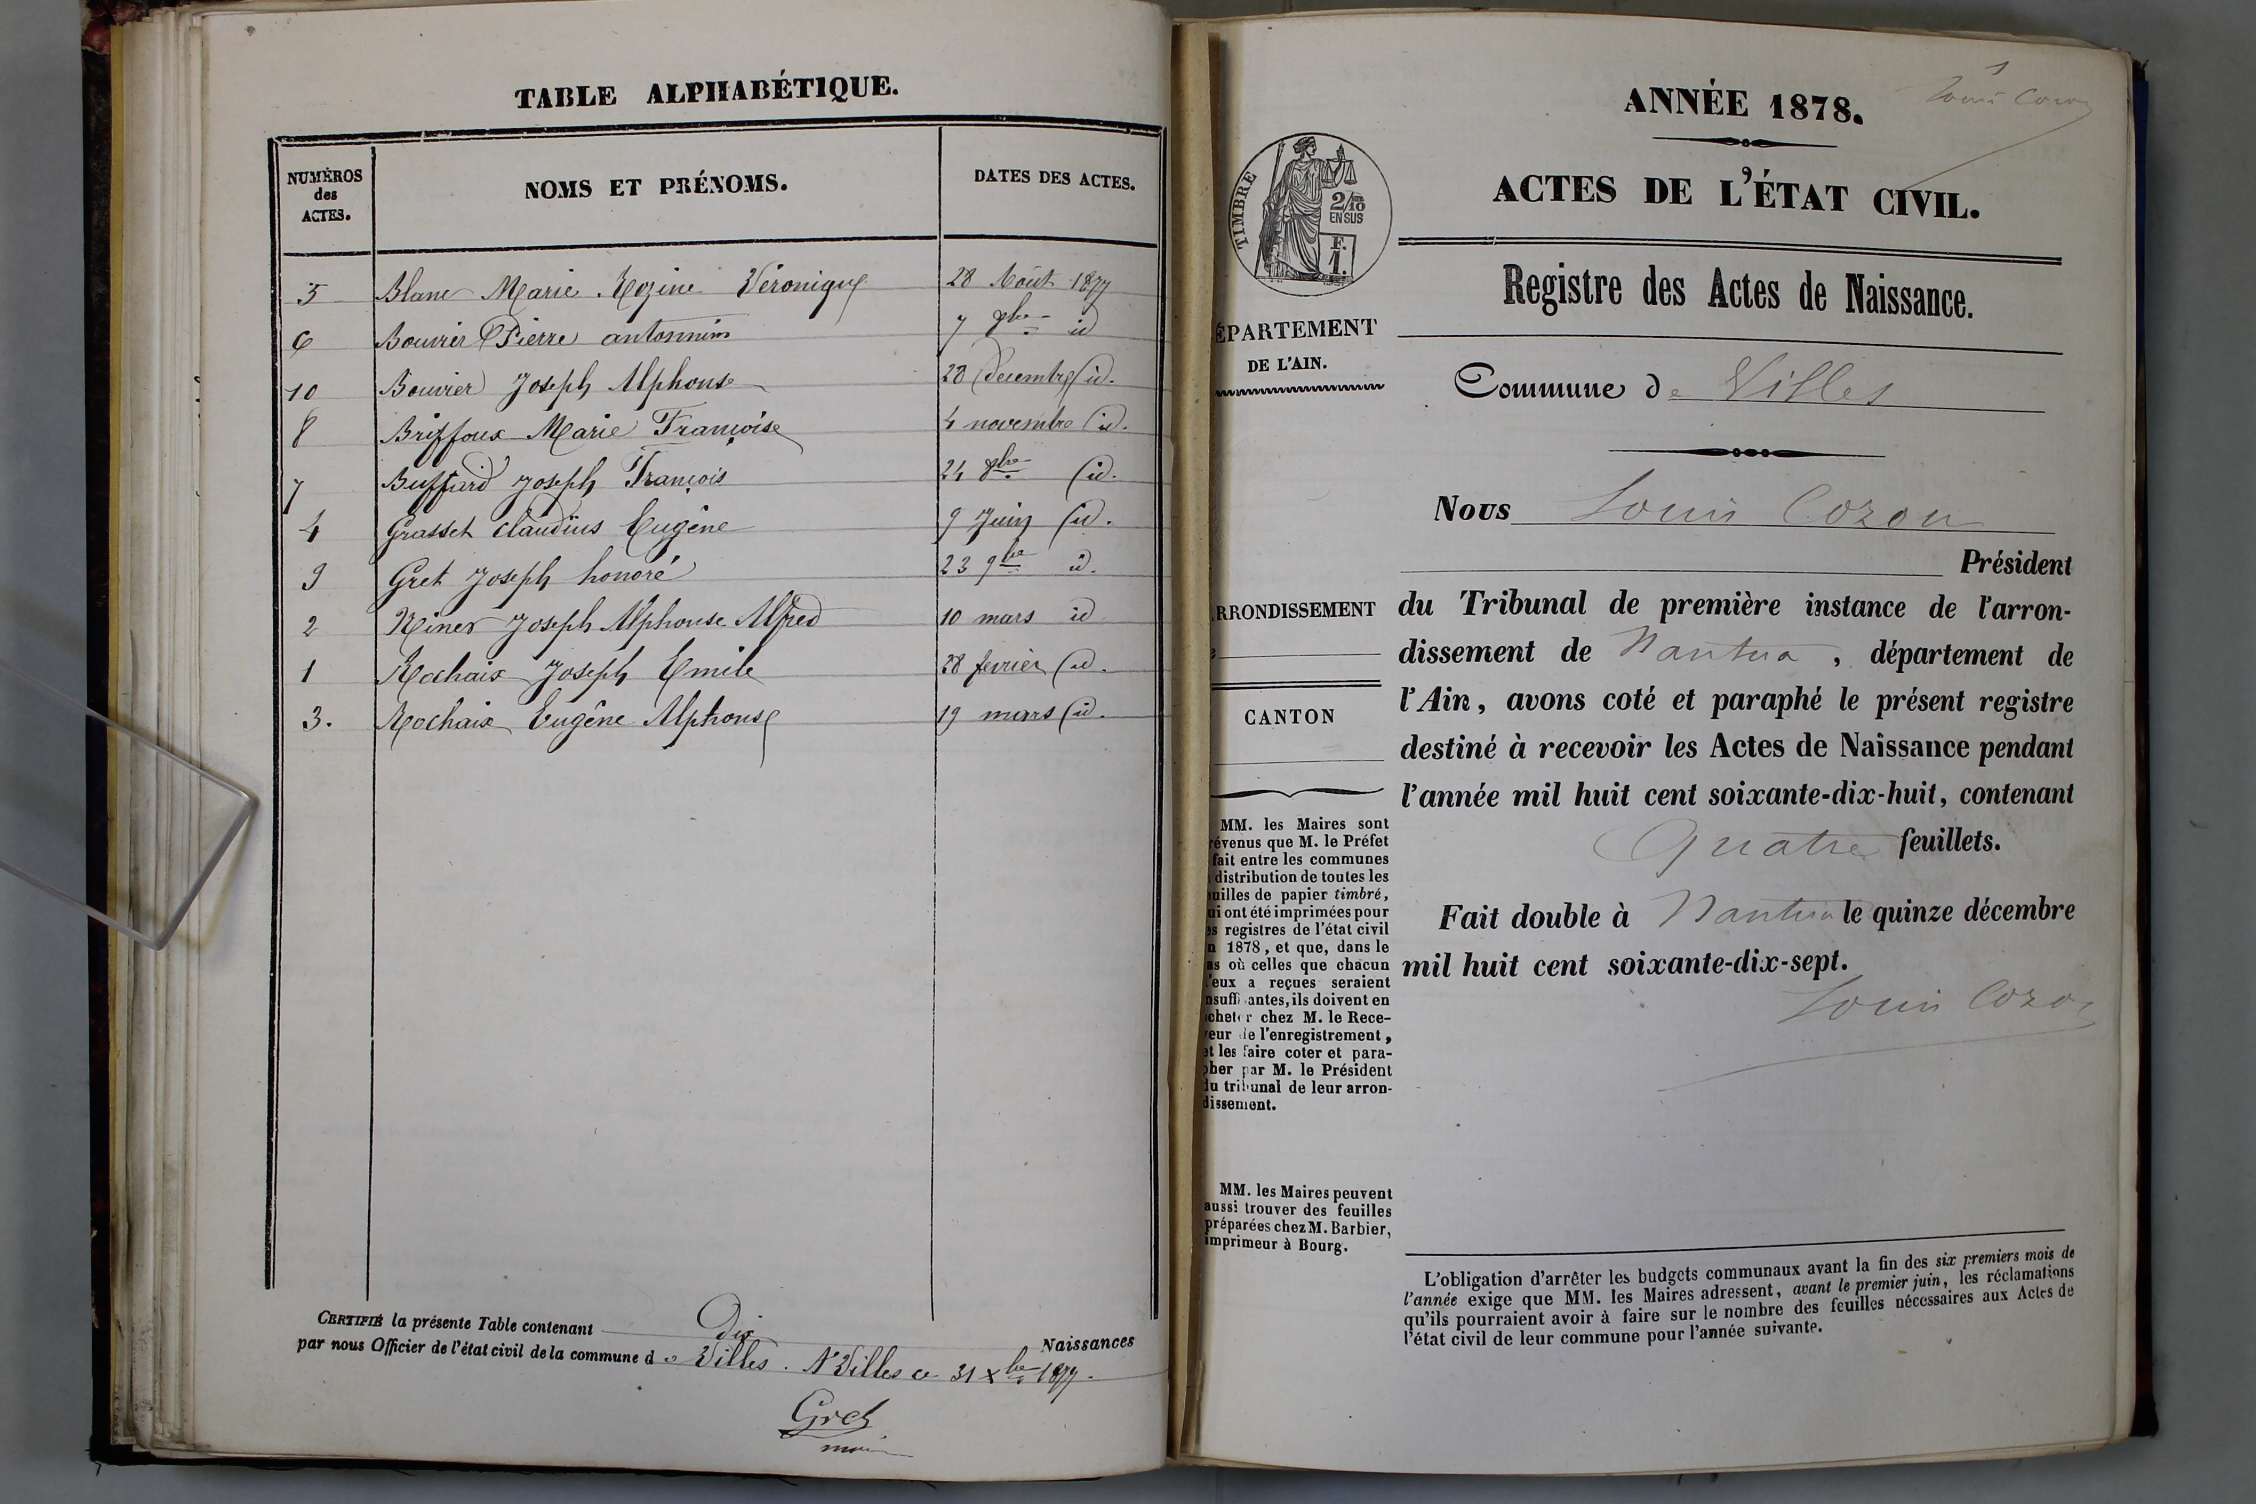 TABLE ALPHABÉTIQUE.
NUMÉROS des ACTES. NOMS ET PRÉNOMS. DATES DES ACTES.
5 Blanc Marie Rozine Véronique 28 Août 1877
6 Bouvier Pierre antonnin 7 8bre id
10 Bouvier Joseph Alphonse 28 Décembre id.
8 Briffoux Marie Françoise 4 novembre id.
7 Buffard Joseph François 24 8bre id.
4 Grasset Claudius Eugène 9 Juin id.
9 Gret Joseph honoré 23 9bre id.
2 Joseph Alphonse Alfred 10 mars id
1 Rochaix Joseph Emile 28 fevrier id.
3. Rochaix Eugène Alphonse 19 mars id.
CERTIFIÉ la présente Table contenant Dix Naissances
par nous Officier de l'état civil de la commune de Villes. A Villes ce 31 Xbre 1877.
Gret
maire
1
Louis Cozon
ANNÉE 1878.
ACTES DE L'ÉTAT CIVIL.
TIMBRE
2/10 EN SUS
F. 1.
Registre des Actes de Naissance.
ÉPARTEMENT
DE L'AIN.
Commune de Villes
Nous Louis Cozon
Président
RRONDISSEMENT
du Tribunal de première instance de l'arron-
dissement de Nantua, département de
l'Ain, avons coté et paraphé le présent registre
destiné à recevoir les Actes de Naissance pendant
l'année mil huit cent soixante-dix-huit, contenant
Quatre feuillets.
Fait double à Nantua le quinze décembre
mil huit cent soixante-dix-sept.
Louis Cozon
CANTON
MM. les Maires sont
révenus que M. le Préfet
fait entre les communes
distribution de toutes les
uilles de papier timbré,
ui ont été imprimées pour
es registres de l'état civil
n 1878, et que, dans le
as où celles que chacun
'eux a reçues seraient
nsuffisantes, ils doivent en
cheter chez M. le Rece-
veur de l'enregistrement,
et les faire coter et para-
pher par M. le Président
du tribunal de leur arron-
dissement.
MM. les Maires peuvent
aussi trouver des feuilles
préparées chez M. Barbier,
imprimeur à Bourg.
L'obligation d'arrêter les budgets communaux avant la fin des six premiers mois de
l'année exige que MM. les Maires adressent, avant le premier juin, les réclamations
qu'ils pourraient avoir à faire sur le nombre des feuilles nécessaires aux Actes de
l'état civil de leur commune pour l'année suivante.